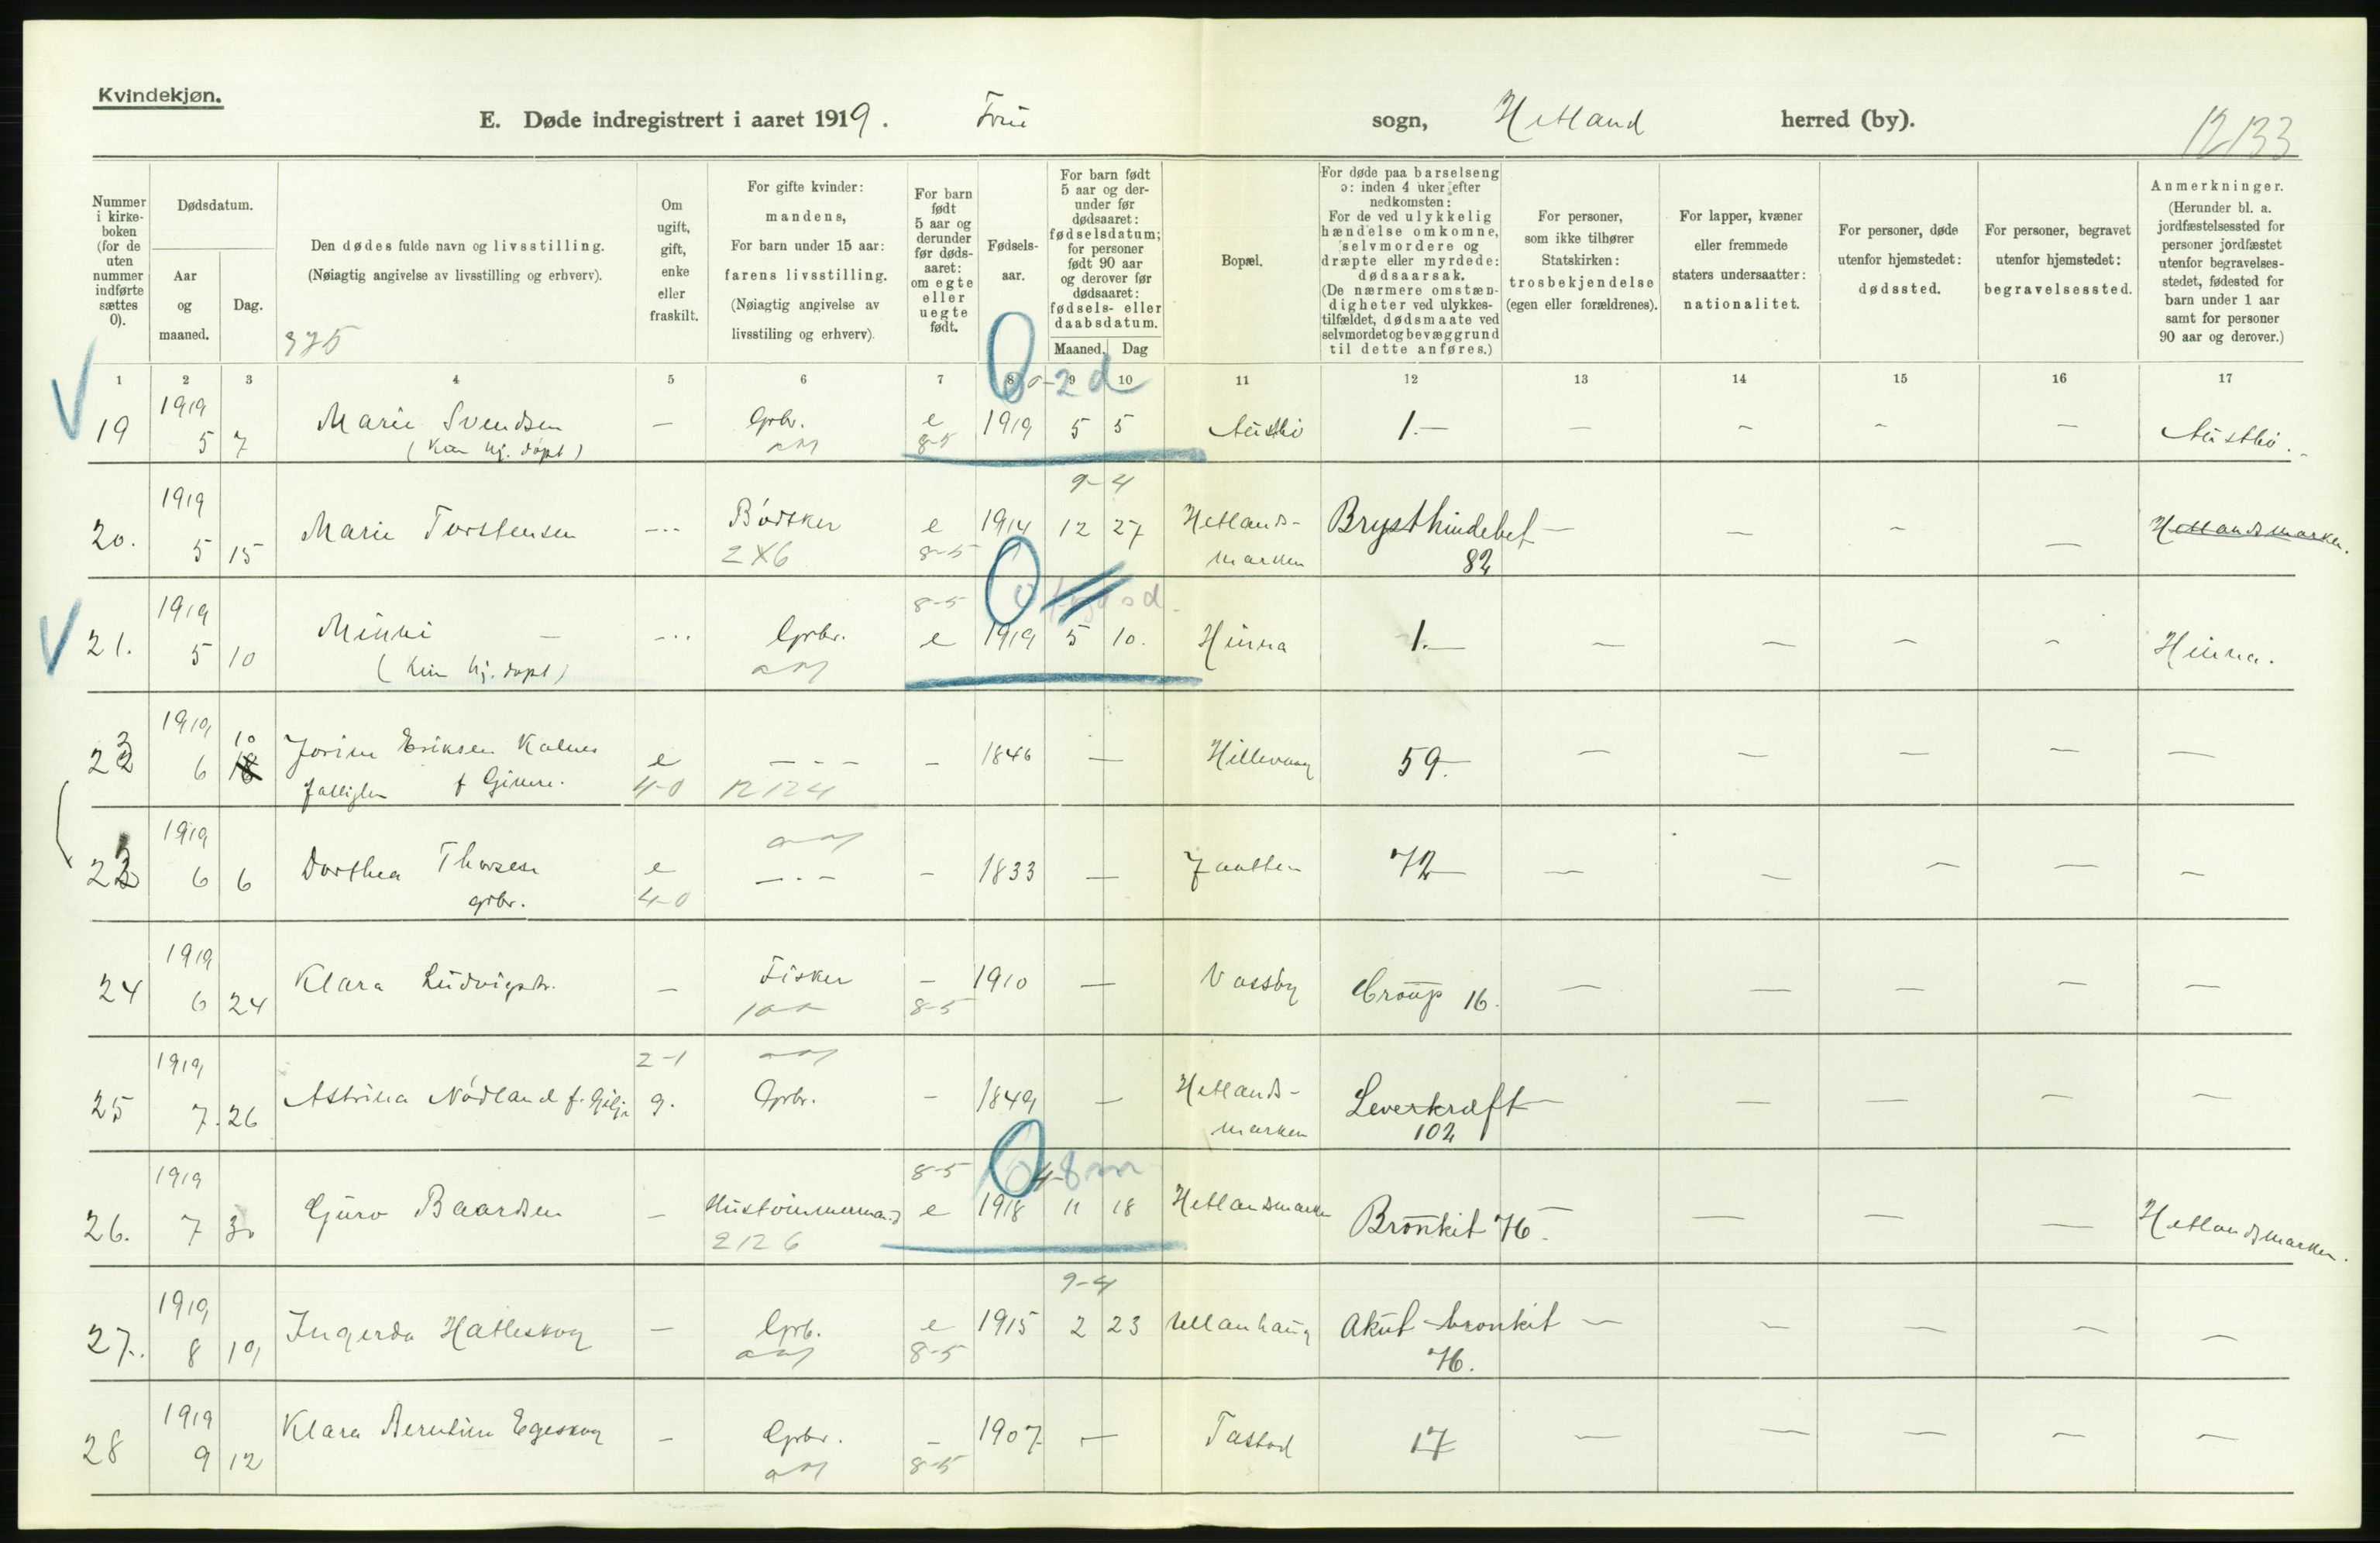 Kvindekjøn.
E. Døde indregistrert i aaret 1919. Frue sogn, Hetland herred (by).
12133
Nummer i kirke-boken (for de uten nummer indførte sættes 0).
Dødsdatum.
Aar og maaned.
Dag.
Den dødes fulde navn og livsstilling.
(Nøiagtig angivelse av livsstilling og erhverv).
375
Om ugift, gift, enke eller fraskilt.
For gifte kvinder: mandens,
For barn under 15 aar: farens livsstilling.
(Nøiagtig angivelse av livsstiling og erhverv).
For barn født 5 aar og derunder før døds-aaret: om egte eller uegte født.
Fødsels-aar.
For barn født 5 aar og der-under før dødsaaret: fødselsdatum; for personer født 90 aar og derover før dødsaaret: fødsels- eller daabsdatum.
Maaned. Dag
Bopæl.
For døde paa barselseng ɔ: inden 4 uker efter nedkomsten:
For de ved ulykkelig hændelse omkomne, selvmordere og dræpte eller myrdede: dødsaarsak.
(De nærmere omstæn-digheter ved ulykkes-tilfældet, dødsmaate ved selvmordet og bevæggrund til dette anføres.)
For personer, som ikke tilhører Statskirken: trosbekjendelse (egen eller forældrenes).
For lapper, kvæner eller fremmede staters undersaatter: nationalitet.
For personer, døde utenfor hjemstedet: dødssted.
For personer, begravet utenfor hjemstedet: begravelsessted.
Anmerkninger.
(Herunder bl. a. jordfæstelsessted for personer jordfæstet utenfor begravelses-stedet, fødested for barn under 1 aar samt for personer 90 aar og derover.)
1 2 3 4 5 6 7 8 9 10 11 12 13 14 15 16 17
0-2d
19 1919 5 7 Marie Svendsen — Grbr. e 1919 5 5 Austbø 1.— — — — — Austbø.
(Kun hj. døpt) 8-5
9-4
20. 1919 5 15 Marie Torstensen — Bødker e 1914 12 27 Hetlands- Brysthindebet — — — — Hetlandsmarken.
2X6 8-5 marken 82
8-5
21. 1919 5 10 Minni — — Grbr. e 1919 5 10. Hinna 1.— — — — — Hinna.
(Kun hj. døpt)
23 1919 6 10 Jorine Eriksen Kalnes e — — 1846 — Hillevaag 59. — — — — —
4-0 12124
22 1919 6 6 Dorthea Thorsen e — — 1833 — Jaatten 72 — — — — —
grbr. 4-0
24 1919 6 24 Klara Ludvigsdtr. — Fisker — 1910 — Vassøy Croup 16. — — — — —
8-5
2-1
25 1919 7. 26 Astrina Nødland f. Gilje g. Grbr. — 1849 — Hetlands- Leverkræft — — — — —
marken 102
8-5 8m
26. 1919 7 30 Guro Baardsen — Hustømmermand e 1918 11 18 Hetlandsmarken Bronkit 76. — — — — Hetlandsmarken.
2126
9-4
27. 1919 8 19 Ingerda Hatleskog — Grb. e 1915 2 23 Ullanhaug Akut bronkit — — — — —
8-5 76.
28 1919 9 12 Klara Berntine Egeskog — Grbr. — 1907 — Tastad 17 — — — — —
8-5